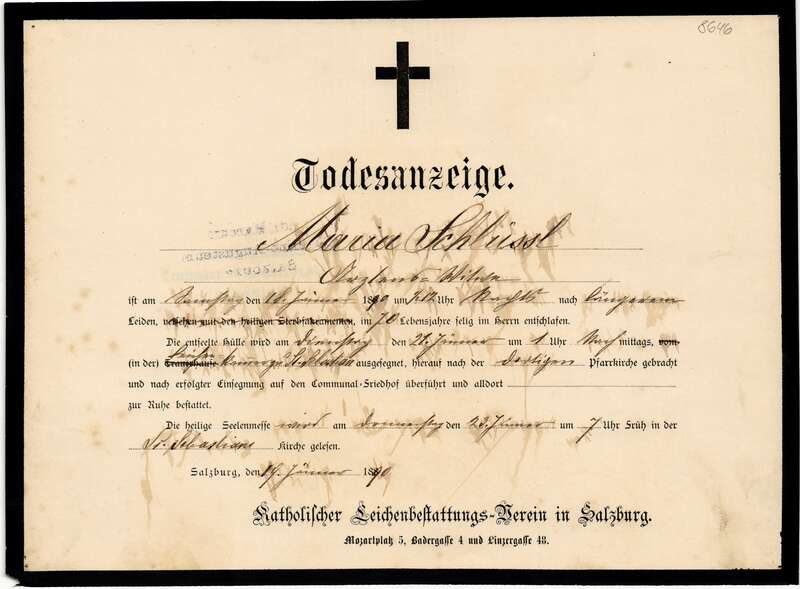 8646
Todesanzeige.
Maria Schlüssl
Arztens-Witwe
ist am Samstag den 18. Jänner 1890 um ½12 Uhr Nachts nach längerem
Leiden, versehen mit den heiligen Sterbsakramenten, im 70 Lebensjahre selig im Herrn entschlafen.
Die entseelte Hülle wird am Dienstag den 21. Jänner um 1 Uhr Nachmittags, vom
(in der) Trauerhause Leichenkammer zu St. ausgesegnet, hierauf nach der dortigen Pfarrkirche gebracht
und nach erfolgter Einsegnung auf den Communal-Friedhof überführt und alldort
zur Ruhe bestattet.
Die heilige Seelenmesse wird am Donnerstag den 23. Jänner um 7 Uhr Früh in der
St. Sebastians Kirche gelesen.
Salzburg, den 19. Jänner 1890
Katholischer Leichenbestattungs-Verein in Salzburg.
Mozartplatz 5, Badergasse 4 und Linzergasse 48.